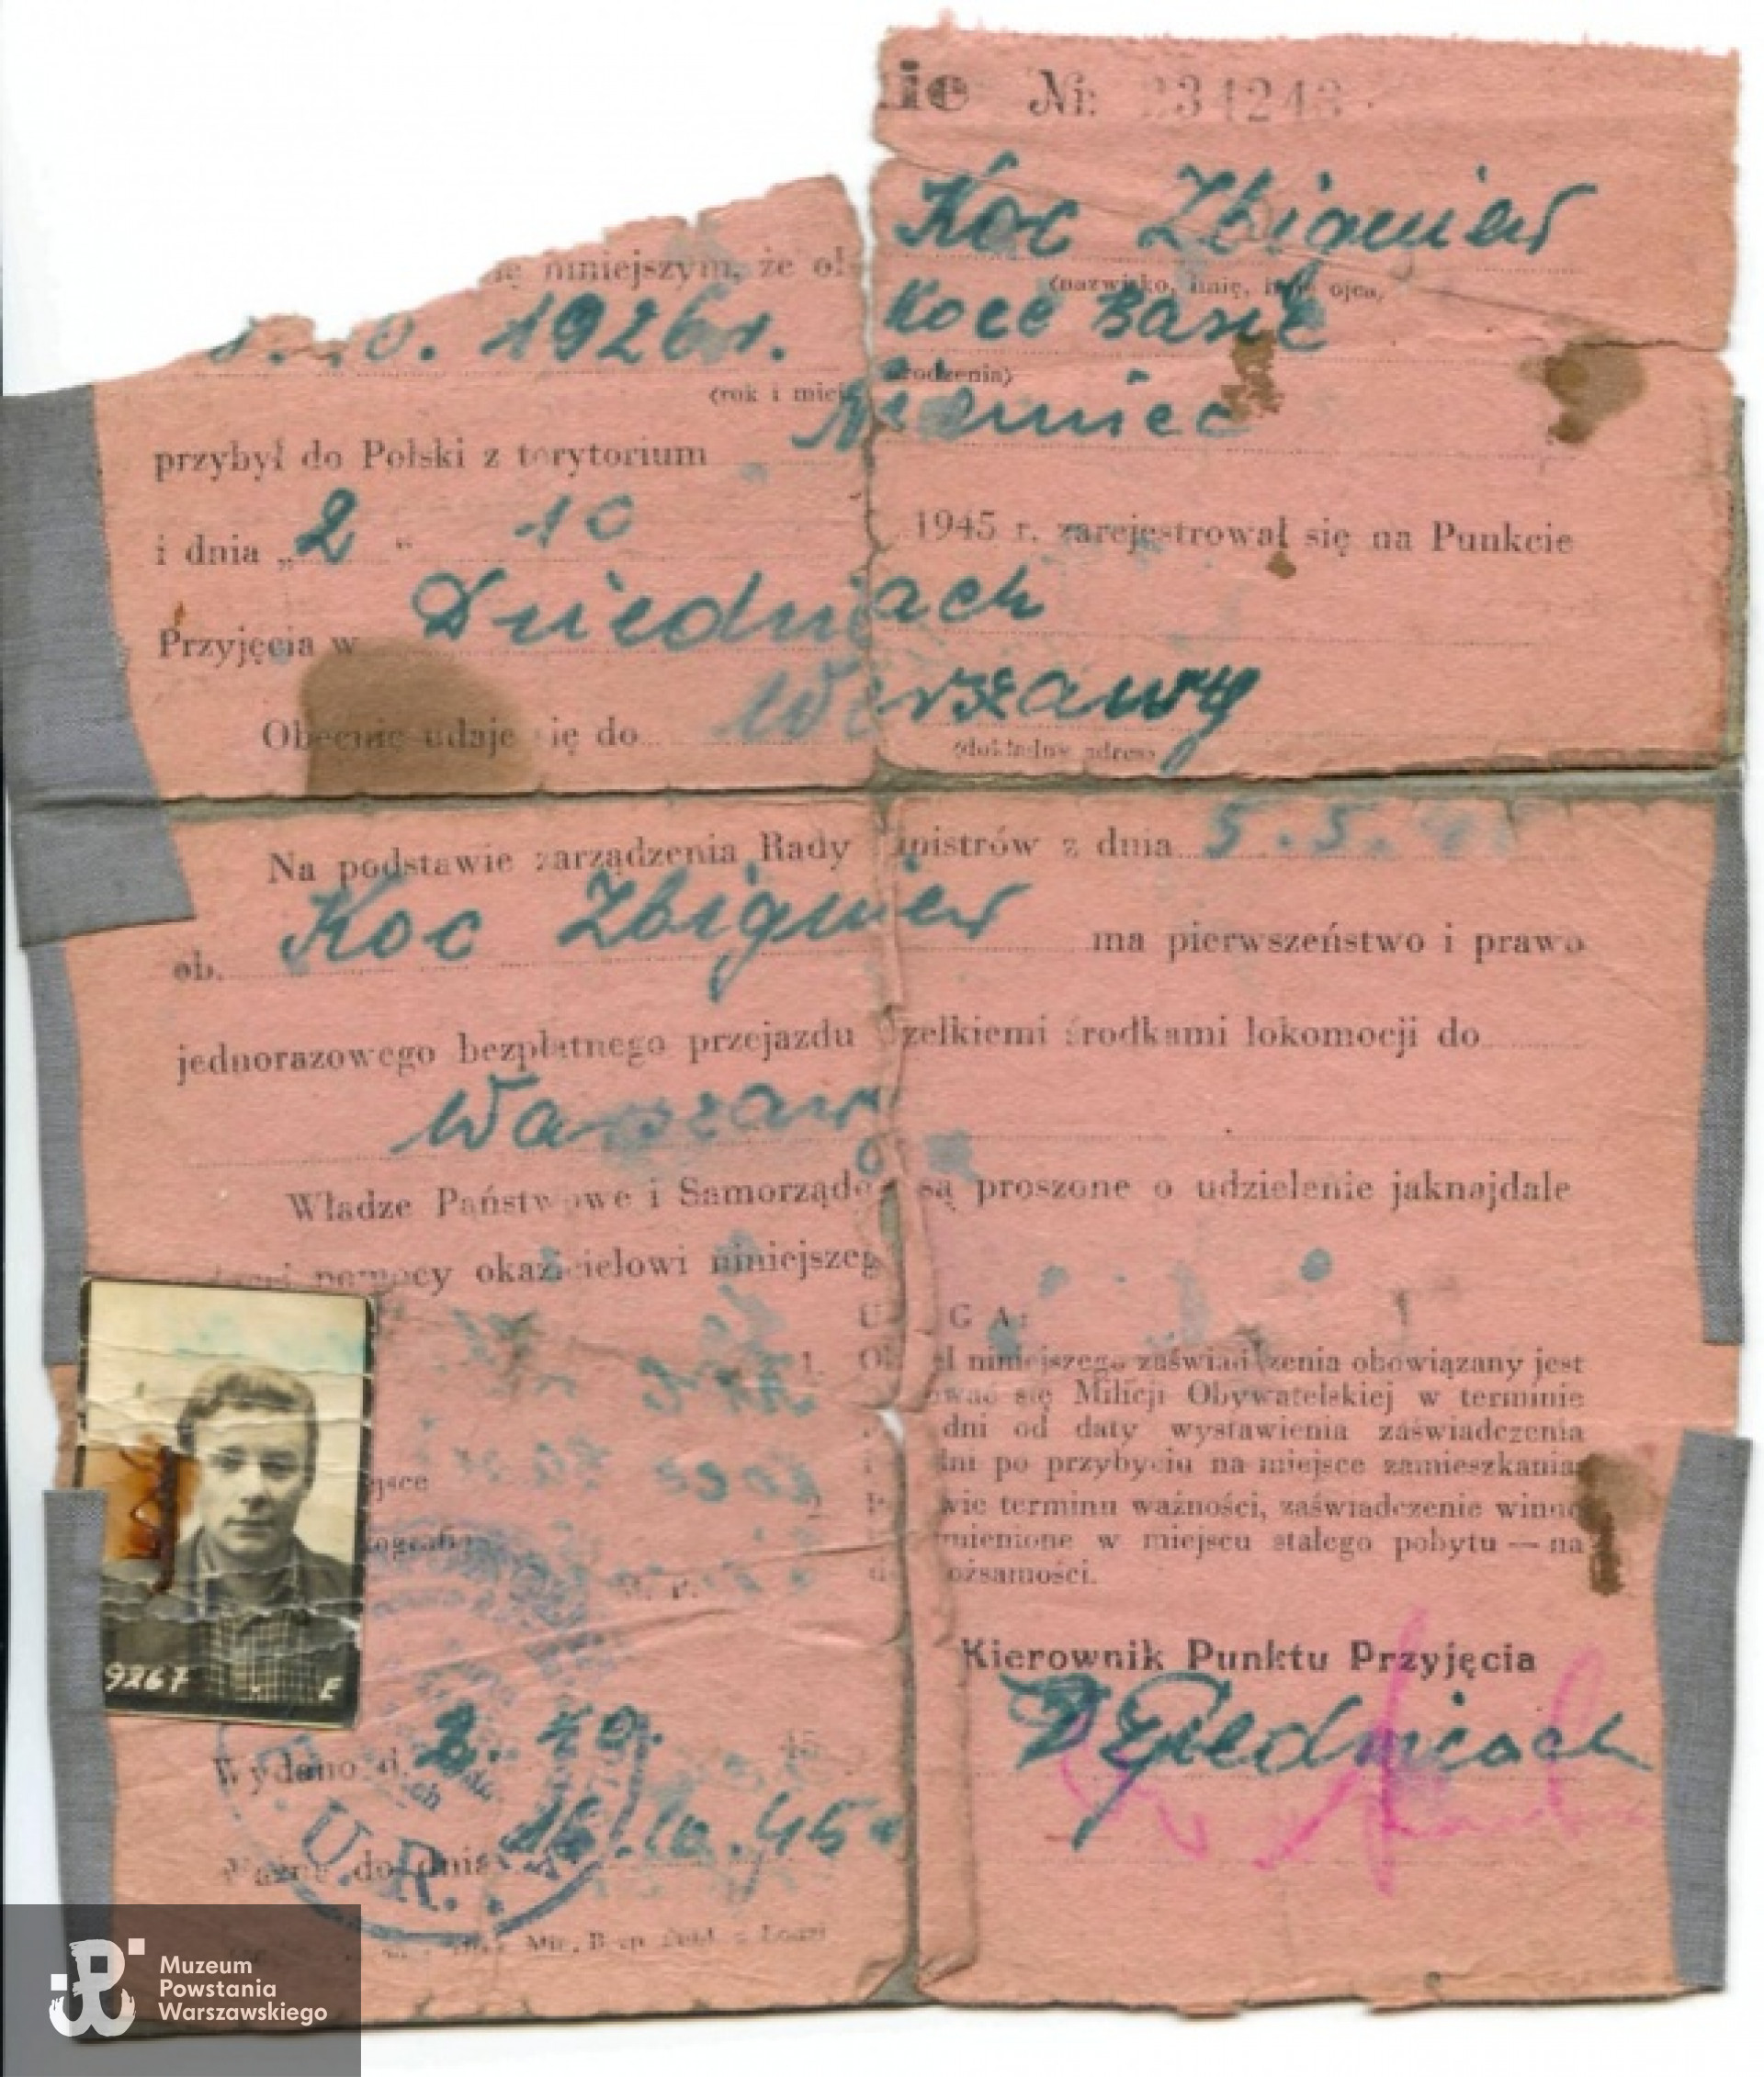 ie Nr. 234243
Koc Zbigniew
niniejszym, że
(nazwisko, imię, ojca)
1926 r. Koce Basie
(rok i miejs rodzenia)
przybył do Polski z terytorium Niemiec
i dnia „2“ 10 1945 r. zarejestrował się na Punkcie
Przyjęcia w Dziednicach
Obecnie udaje się do Warszawy
(dokładny adres)
Na podstawie zarządzenia Rady inistrów z dnia 5.5.45
ob. Koc Zbigniew ma pierwszeństwo i prawo
jednorazowego bezpłatnego przejazdu zelkiemi środkami lokomocji do
Warszawy
Władze Państwowe i Samorządo są proszone o udzielenie jaknajdale
pomocy okazicielowi niniejszeg
U G A:
1. Ok el niniejszego zaświadczenia obowiązany jest
ować się Milicji Obywatelskiej w terminie
dni od daty wystawienia zaświadczenia
dni po przybyciu na miejsce zamieszkania
2 P wie terminu ważności, zaświadczenie winno
mienione w miejscu stałego pobytu — na
d ożsamości.
jsce
tografię
M. P.
9267 E
Kierownik Punktu Przyjęcia
Dziednicach
Wydano d. 2. 10. 45
Ważne do dnia 16.10.45 r
U.R.
Łodzi
Muzeum
Powstania
Warszawskiego